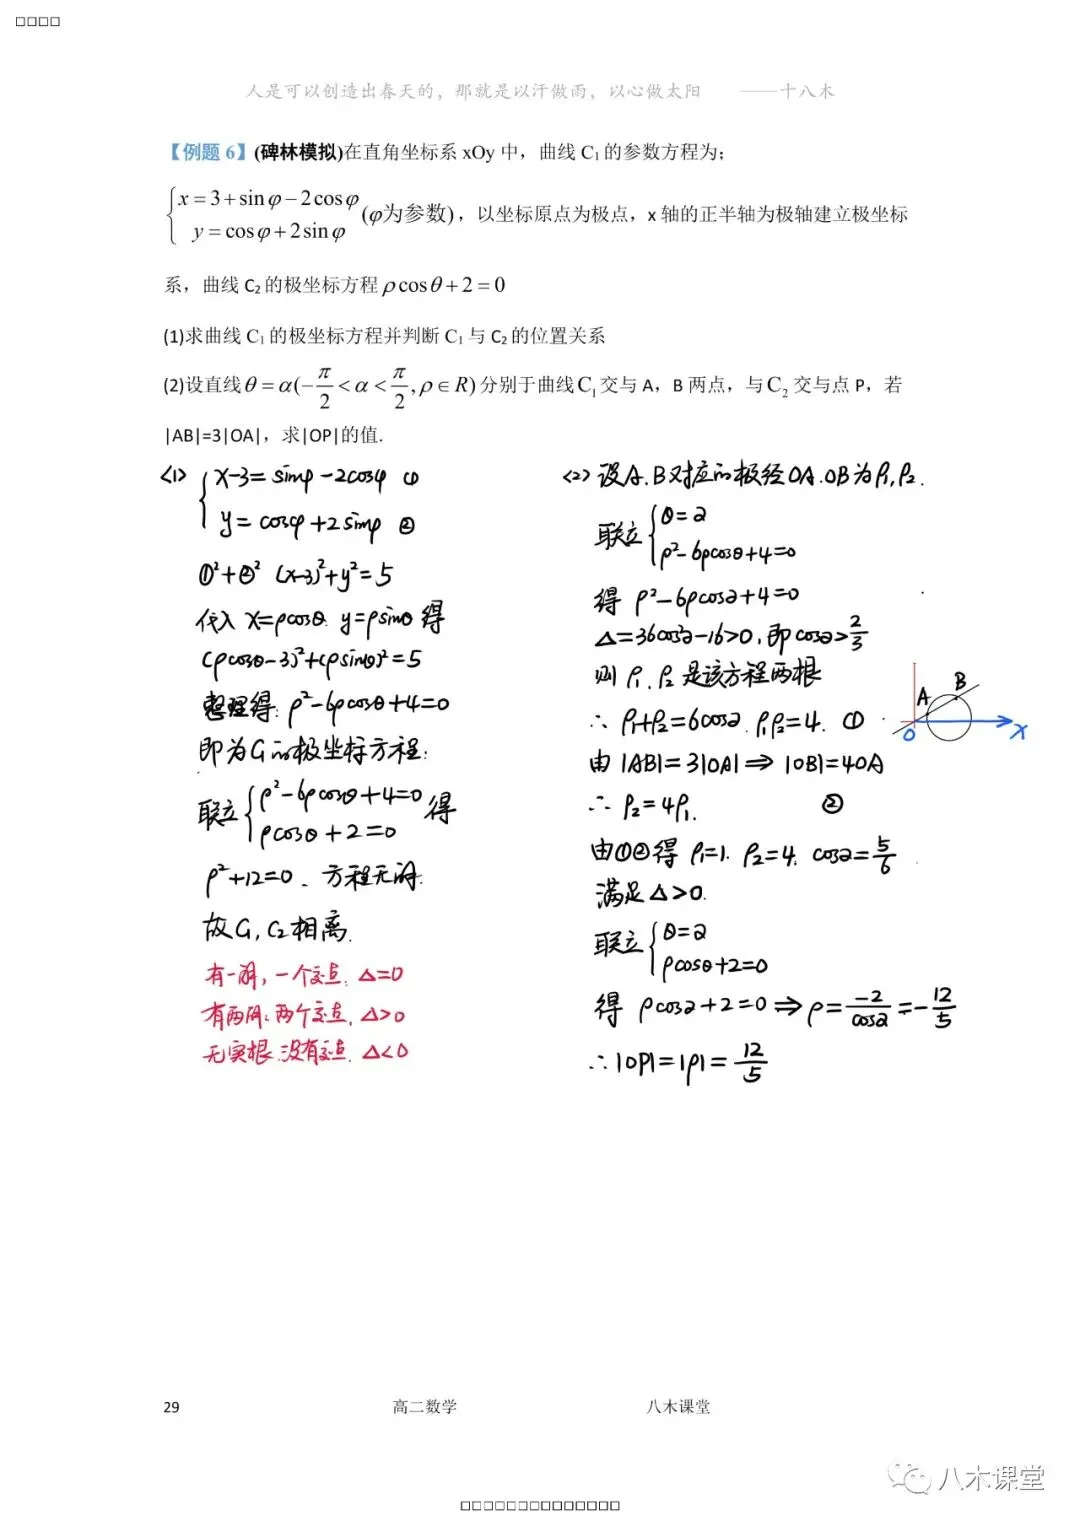 人是可以创造出春天的，那就是以汗做雨，以心做太阳 ——十八木
【例题 6】(碑林模拟)在直角坐标系 xOy 中，曲线 C₁ 的参数方程为；
{x = 3 + sin φ − 2cos φ
y = cos φ + 2sin φ (φ为参数)，以坐标原点为极点，x 轴的正半轴为极轴建立极坐标
系，曲线 C₂ 的极坐标方程 ρ cos θ + 2 = 0
(1)求曲线 C₁ 的极坐标方程并判断 C₁ 与 C₂ 的位置关系
(2)设直线 θ = α(−π/2 < α < π/2, ρ ∈ R) 分别于曲线 C₁ 交与 A，B 两点，与 C₂ 交与点 P，若
|AB|=3|OA|，求|OP|的值.
<1> {x-3=sinφ-2cosφ ①
y=cosφ+2sinφ ②
①²+②² (x-3)²+y²=5
代入 x=ρcosθ. y=ρsinθ 得
(ρcosθ-3)²+(ρsinθ)²=5
整理得: ρ²-6ρcosθ+4=0
即为C₁的极坐标方程:
联立 {ρ²-6ρcosθ+4=0
ρcosθ+2=0 得
ρ²+12=0、方程无解.
故C₁, C₂相离.
有一解, 一个交点. △=0
有两解: 两个交点. △>0
无实根. 没有交点. △<0
<2> 设A.B对应的极径OA.OB为ρ₁,ρ₂.
联立 {θ=α
ρ²-6ρcosθ+4=0
得 ρ²-6ρcosα+4=0
△=36cos²α-16>0, 即cosα>2/3
则 ρ₁、ρ₂ 是该方程两根
∴ ρ₁+ρ₂=6cosα. ρ₁ρ₂=4. ①
由 |AB|=3|OA| ⇒ |OB|=4OA
∴ ρ₂=4ρ₁. ②
由①②得 ρ₁=1. ρ₂=4. cosα=5/6
满足△>0.
联立 {θ=α
ρcosθ+2=0
得 ρcosα+2=0 ⇒ ρ=-2/cosα=-12/5
∴ |OP|=|ρ|=12/5
A
B
O
x
29 高二数学 八木课堂
八木课堂